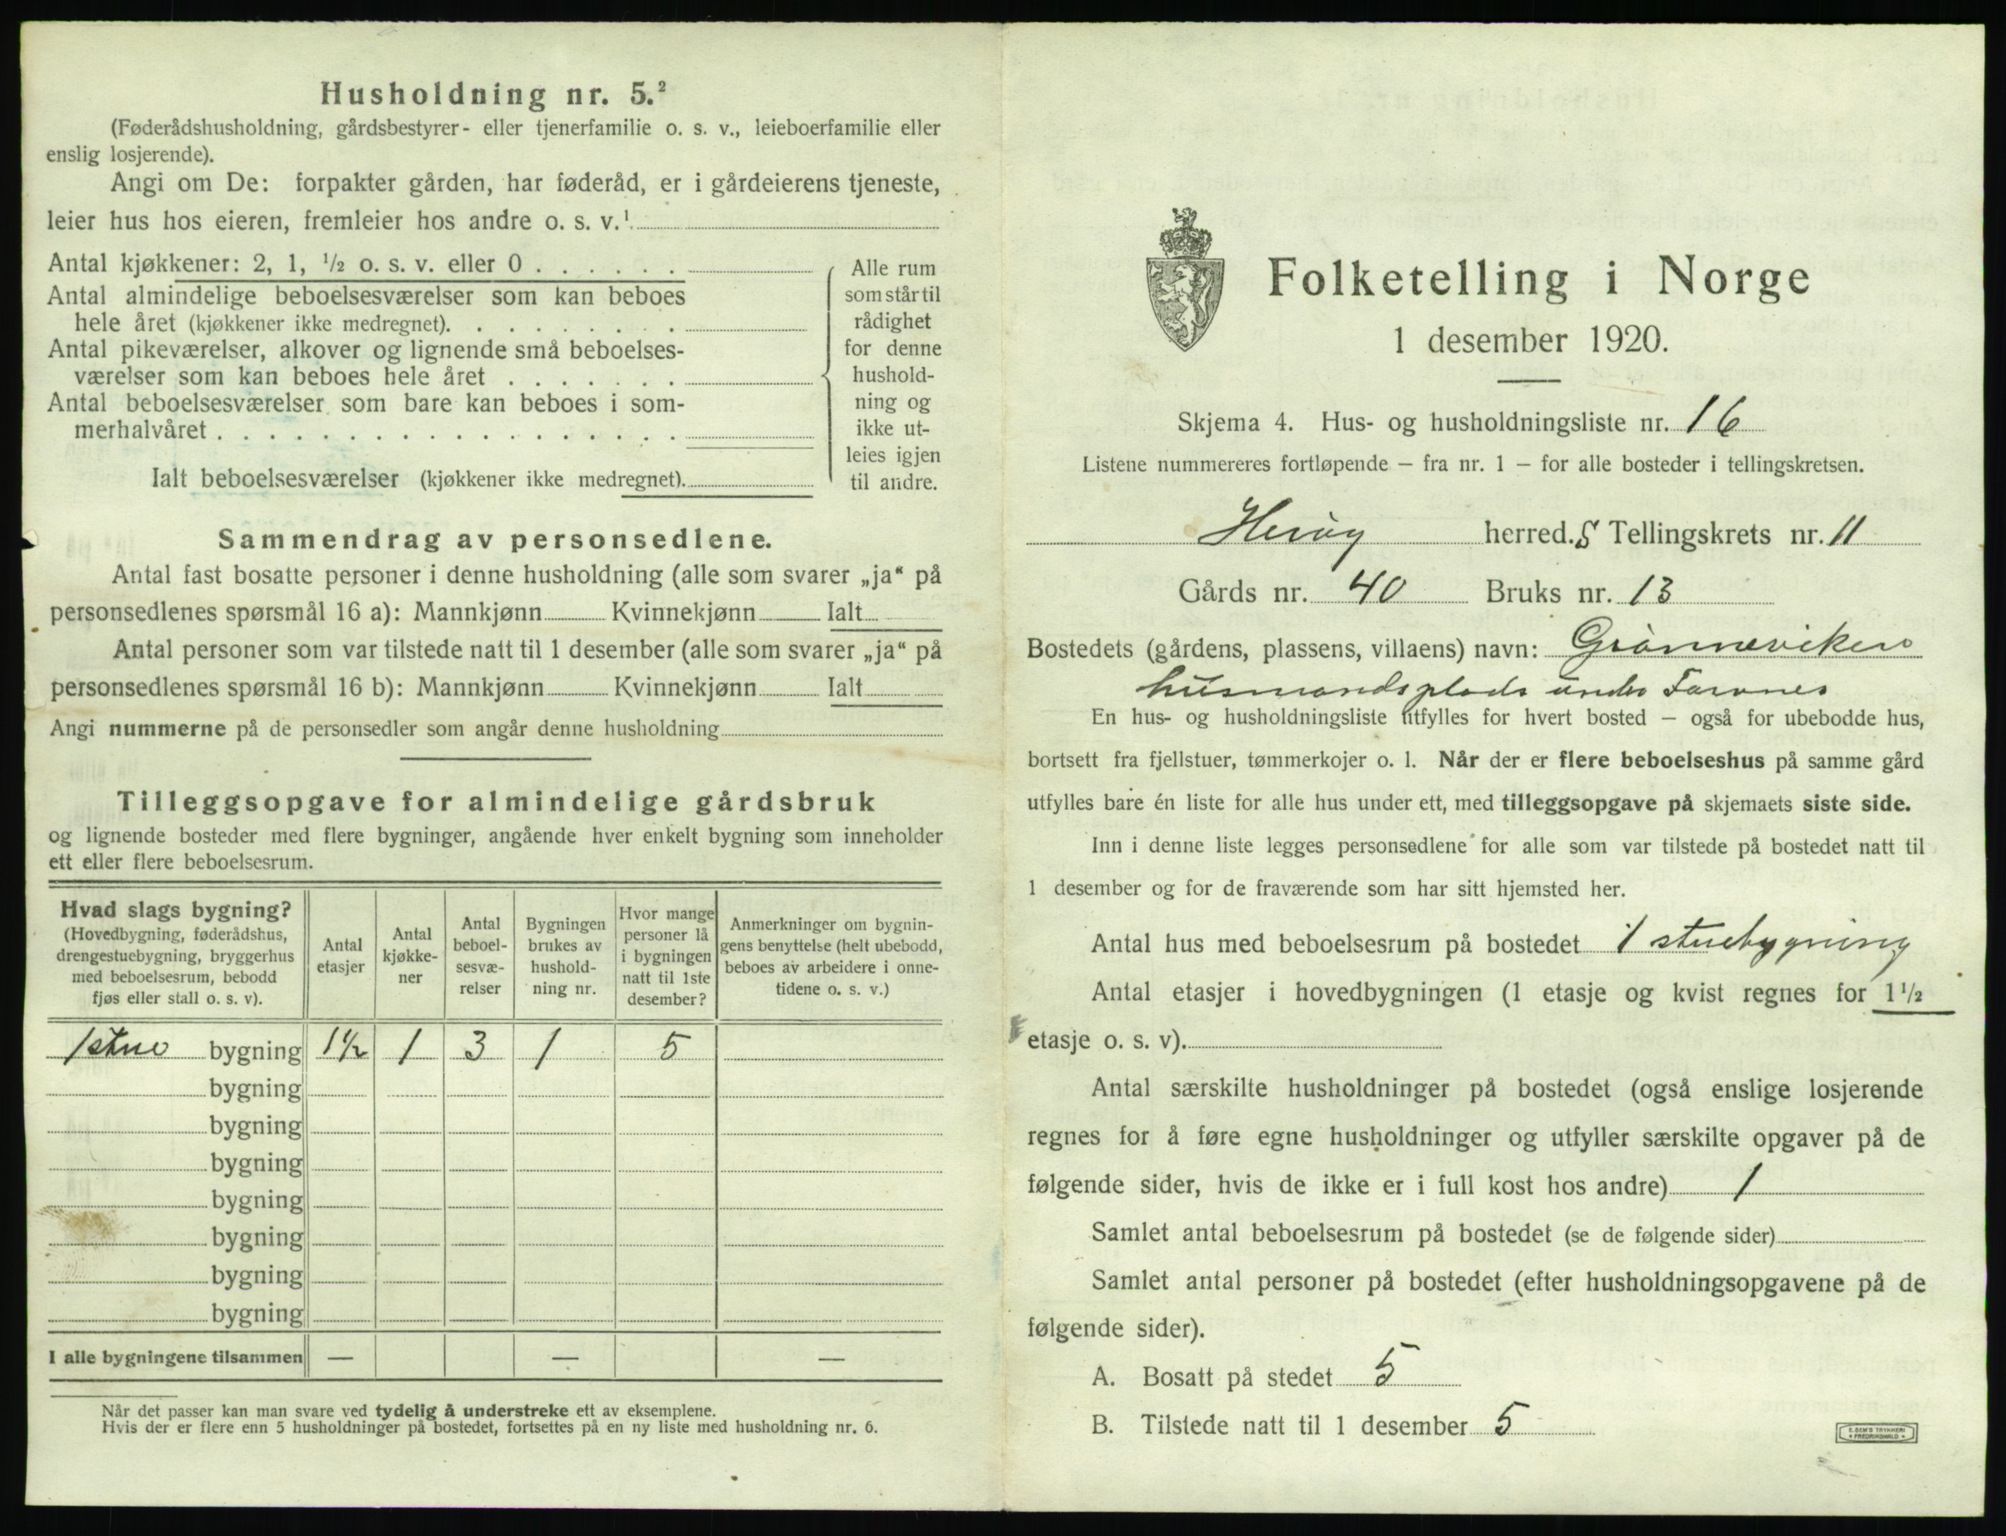 Husholdning nr. 5.²
(Føderådshusholdning, gårdsbestyrer- eller tjenerfamilie o. s. v., leieboerfamilie eller
enslig losjerende).
Angi om De: forpakter gården, har føderåd, er i gårdeierens tjeneste,
leier hus hos eieren, fremleier hos andre o. s. v.¹
Antal kjøkkener: 2, 1, ½ o. s. v. eller 0 . . . . . .
Antal almindelige beboelsesværelser som kan beboes
hele året (kjøkkener ikke medregnet). . . . . . . . .
Antal pikeværelser, alkover og lignende små beboelses-
værelser som kan beboes hele året . . . . . . .
Antal beboelsesværelser som bare kan beboes i som-
merhalvåret . . . . . . . . . . . . . . . . . .
Ialt beboelsesværelser (kjøkkener ikke medregnet).
Alle rum
som står til
rådighet
for denne
hushold-
ning og
ikke ut-
leies igjen
til andre.
Sammendrag av personsedlene.
Antal fast bosatte personer i denne husholdning (alle som svarer „ja“ på
personsedlenes spørsmål 16 a): Mannkjønn Kvinnekjønn Ialt
Antal personer som var tilstede natt til 1 desember (alle som svarer „ja“ på
personsedlenes spørsmål 16 b): Mannkjønn Kvinnekjønn Ialt
Angi nummerne på de personsedler som angår denne husholdning
Tilleggsopgave for almindelige gårdsbruk
og lignende bosteder med flere bygninger, angående hver enkelt bygning som inneholder
ett eller flere beboelsesrum.
Hvad slags bygning?
(Hovedbygning, føderådshus,
drengestuebygning, bryggerhus
med beboelsesrum, bebodd
fjøs eller stall o. s. v).
Antal
etasjer
Antal
kjøkke-
ner
Antal
beboel-
sesvæ-
relser
Bygningen
brukes av
hushold-
ning nr.
Hvor mange
personer lå
i bygningen
natt til 1ste
desember?
Anmerkninger om bygnin-
gens benyttelse (helt ubebodd,
beboes av arbeidere i onne-
tidene o. s. v.)
1 stue bygning 1½ 1 3 1 5
bygning
bygning
bygning
bygning
bygning
bygning
bygning
I alle bygningene tilsammen — — —
Når det passer kan man svare ved tydelig å understreke ett av eksemplene.
Hvis der er flere enn 5 husholdninger på bostedet, fortsettes på en ny liste med husholdning nr. 6.
Folketelling i Norge
1 desember 1920.
Skjema 4. Hus- og husholdningsliste nr. 16
Listene nummereres fortløpende – fra nr. 1 – for alle bosteder i tellingskretsen.
Herøy herred. S Tellingskrets nr. 11
Gårds nr. 40 Bruks nr. 13
Bostedets (gårdens, plassens, villaens) navn: Grønneviken
husmandsplads under Tarvnes
En hus- og husholdningsliste utfylles for hvert bosted – også for ubebodde hus,
bortsett fra fjellstuer, tømmerkojer o. l. Når der er flere beboelseshus på samme gård
utfylles bare én liste for alle hus under ett, med tilleggsopgave på skjemaets siste side.
Inn i denne liste legges personsedlene for alle som var tilstede på bostedet natt til
1 desember og for de fraværende som har sitt hjemsted her.
Antal hus med beboelsesrum på bostedet 1 stuebygning
Antal etasjer i hovedbygningen (1 etasje og kvist regnes for 1½
etasje o. s. v).
Antal særskilte husholdninger på bostedet (også enslige losjerende
regnes for å føre egne husholdninger og utfyller særskilte opgaver på de
følgende sider, hvis de ikke er i full kost hos andre) 1
Samlet antal beboelsesrum på bostedet (se de følgende sider)
Samlet antal personer på bostedet (efter husholdningsopgavene på de
følgende sider).
A. Bosatt på stedet 5
B. Tilstede natt til 1 desember 5
E. SEM'S TRYKKERI
FREDRIKSHALD